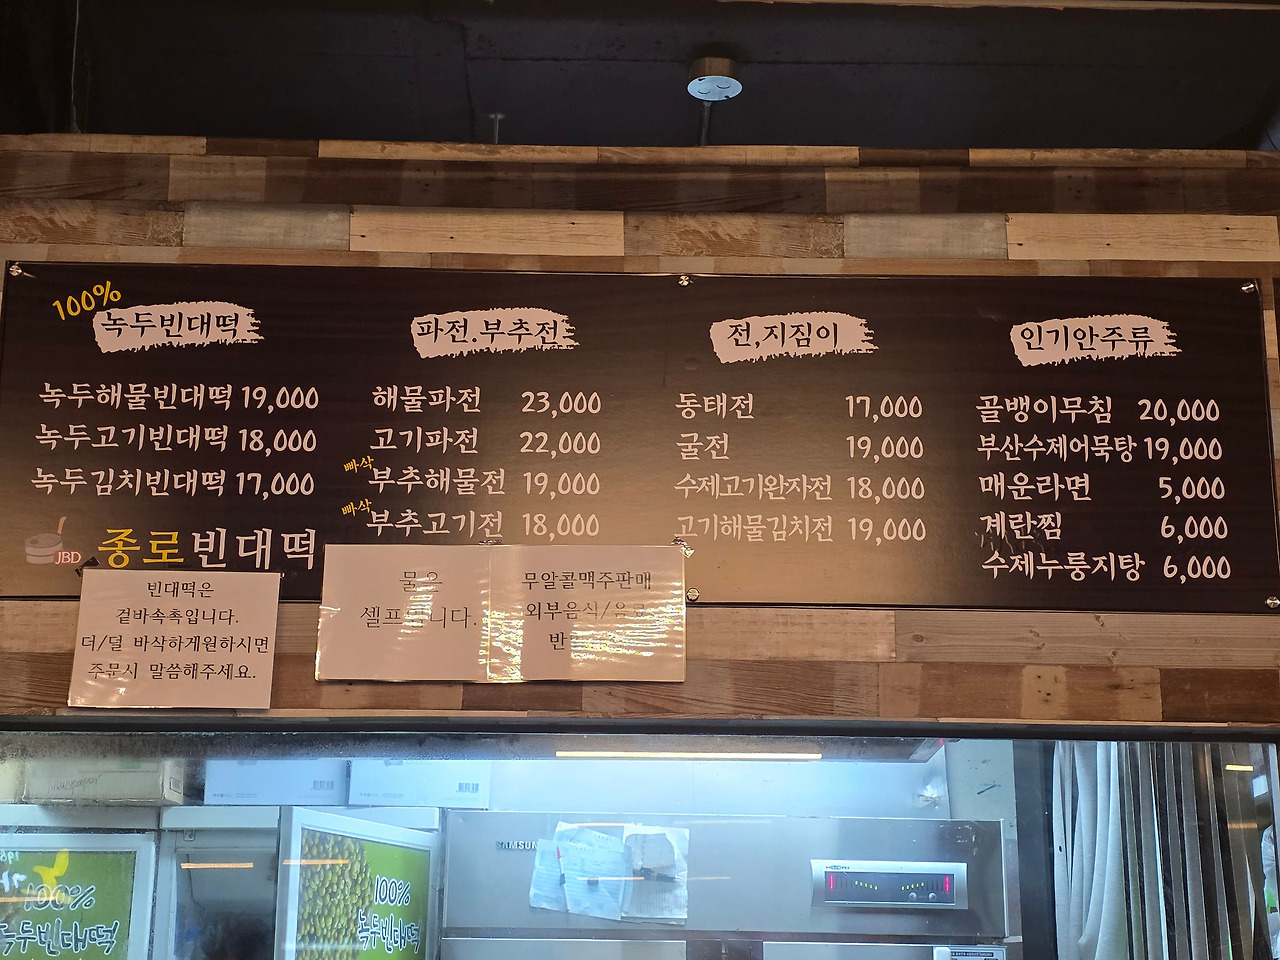 100%
녹두빈대떡
녹두해물빈대떡 19,000
녹두고기빈대떡 18,000
녹두김치빈대떡 17,000
JBD
종로빈대떡
파전.부추전
해물파전 23,000
고기파전 22,000
빠삭
부추해물전 19,000
빠삭
부추고기전 18,000
전,지짐이
동태전 17,000
굴전 19,000
수제고기완자전 18,000
고기해물김치전 19,000
인기안주류
골뱅이무침 20,000
부산수제어묵탕 19,000
매운라면 5,000
계란찜 6,000
수제누룽지탕 6,000
빈대떡은
겉바속촉입니다.
더/덜 바삭하게원하시면
주문시 말씀해주세요.
물은
셀프입니다.
무알콜맥주판매
외부음식/음료
반
100%
녹두빈대떡
100%
녹두빈대떡
SAMSUN